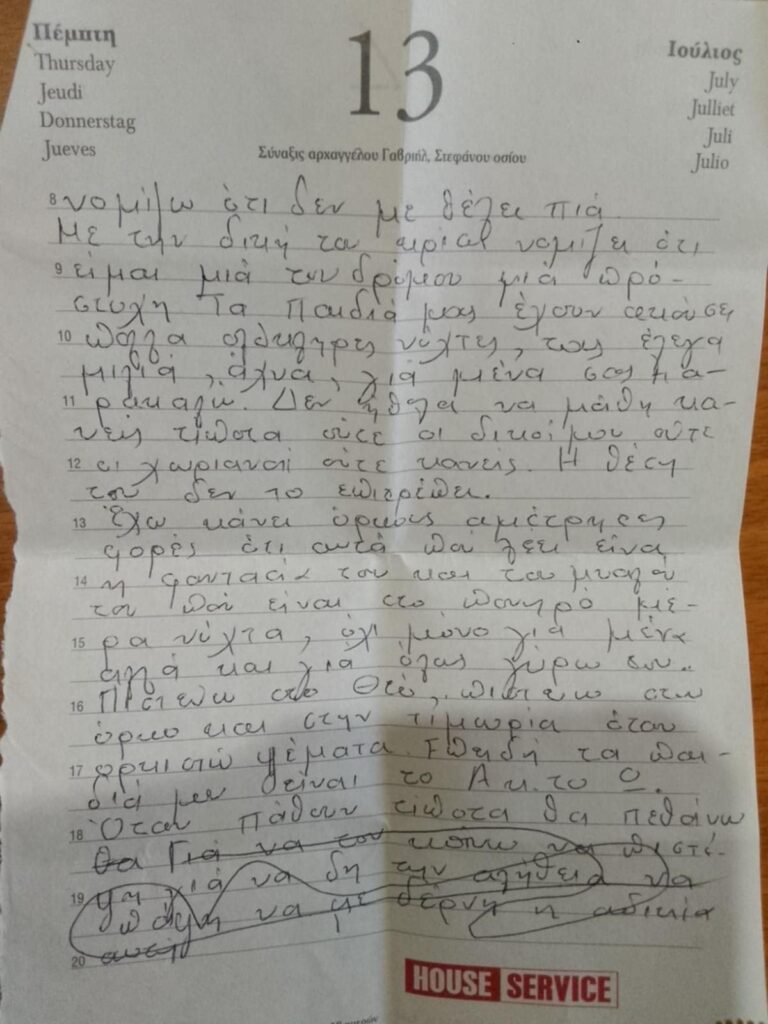 Πέμπτη
Thursday
Jeudi
Donnerstag
Jueves
13
Ιούλιος
July
Julliet
Juli
Julio
Σύναξις αρχαγγέλου Γαβριήλ, Στεφάνου οσίου
8 νομίζω ότι δεν με θέλει πιά
Με την δική του νομίζει ότι
9 είμαι μιά του δρόμου μιά πρό-
στυχη Τα Παιδιά μας έχουν ακούσει
10 πολλά ολόκληρες νύχτες, τους έλεγα
μιλιά, άχνα, γιά μένα σας πα-
11 ρακαλω. Δεν ήθελα να μάθη κα-
νείς τίποτα ούτε οι δικοί μου ούτε
12 οι χωριανοί ούτε κανείς. Η θέση
του δεν το επιτρέπει.
13 Έχω κάνει όρκους αμέτρητες
φορές ότι αυτά πού λέει είναι
14 η φαντασία του και το μυαλό
του πού είναι στο πονηρό μέ-
15 ρα νύχτα, όχι μόνο γιά μένα
αλλά και γιά όλους γύρω του..
16 Πιστεύω στο Θεό, πιστεύω στον
όρκο και στην τιμωρία όταν
17 ορκιστώ ψέματα. Επειδή τα παι-
διά μου είναι το Α κ. το Ω.
18 Όταν πάθουν τίποτα θα πεθάνω
θα Γιά να τον κάνω να πιστέ-
19 ψη γιά να δη την αλήθεια να
πάψη να με δέρνη η αδικία
20 αυτή
HOUSE SERVICE